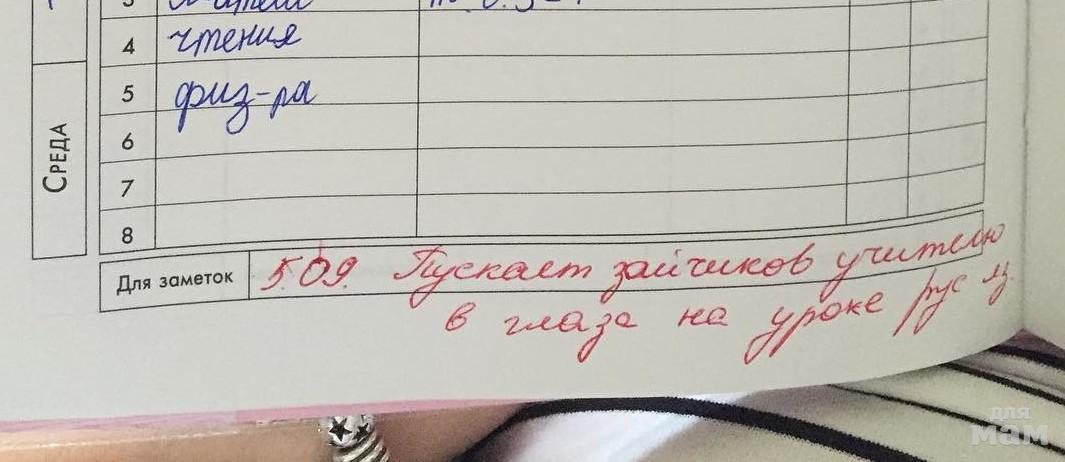 3
4 чтения
СРЕДА
5 физ-ра
6
7
8
Для заметок 5.09. Пускает зайчиков учителю
в глаза на уроке рус яз.
для
мам